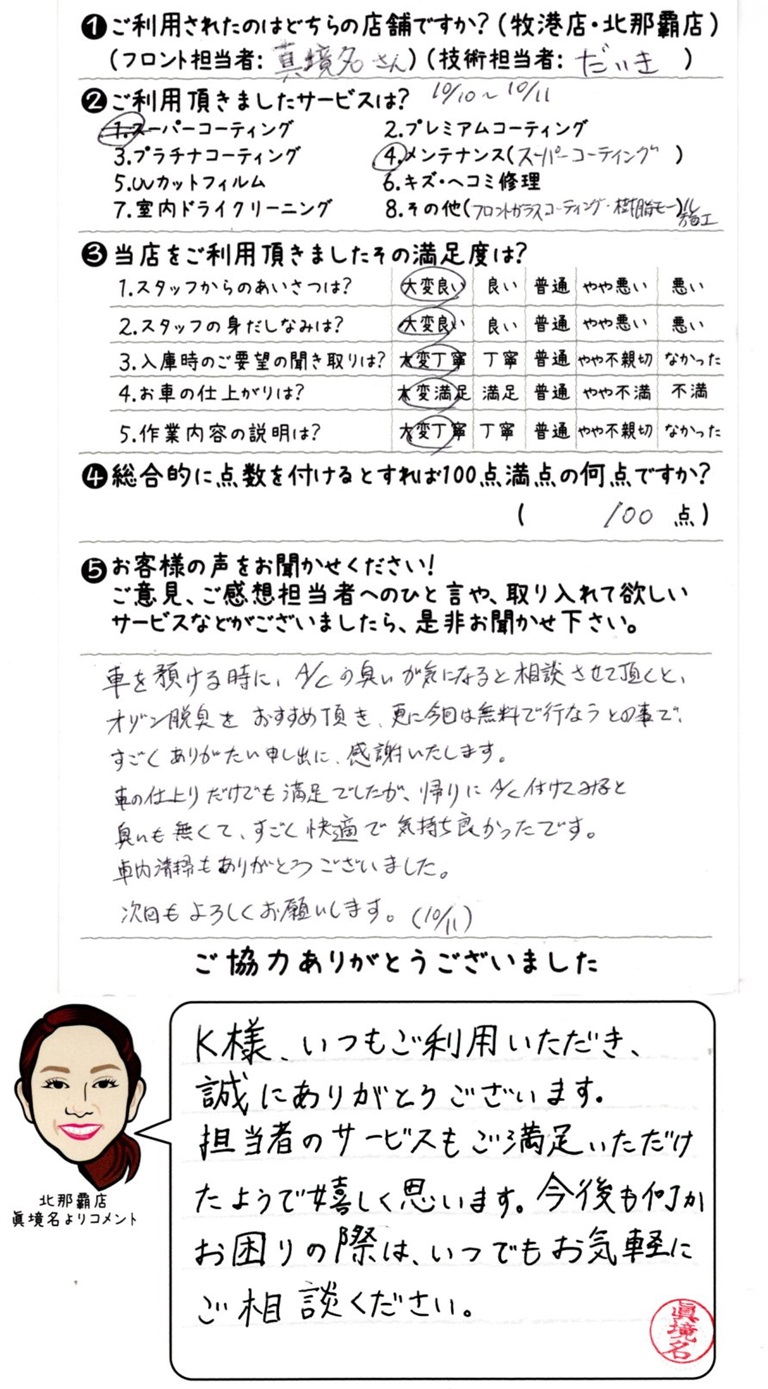 ❶ご利用されたのはどちらの店舗ですか？（牧港店・北那覇店）
（フロント担当者: 真境名さん）（技術担当者: だいき ）
❷ご利用頂きましたサービスは？ 10/10～10/11
1.スーパーコーティング 2.プレミアムコーティング
3.プラチナコーティング 4.メンテナンス（スーパーコーティング ）
5.UVカットフィルム 6.キズ・ヘコミ修理
7.室内ドライクリーニング 8.その他（フロントガラスコーティング・樹脂モール）施工
❸当店をご利用頂きましたその満足度は？
1.スタッフからのあいさつは？ 大変良い 良い 普通 やや悪い 悪い
2.スタッフの身だしなみは？ 大変良い 良い 普通 やや悪い 悪い
3.入庫時のご要望の聞き取りは？ 大変丁寧 丁寧 普通 やや不親切 なかった
4.お車の仕上がりは？ 大変満足 満足 普通 やや不満 不満
5.作業内容の説明は？ 大変丁寧 丁寧 普通 やや不親切 なかった
❹総合的に点数を付けるとすれば100点満点の何点ですか？
（ 100 点）
❺お客様の声をお聞かせください！
ご意見、ご感想担当者へのひと言や、取り入れて欲しい
サービスなどがございましたら、是非お聞かせ下さい。
車を預ける時に、A/Cの臭いが気になると相談させて頂くと、
オゾン脱臭をおすすめ頂き、更に今回は無料で行なうとの事で、
すごくありがたい申し出に、感謝いたします。
車の仕上りだけでも満足でしたが、帰りにA/C付けてみると
臭いも無くて、すごく快適で気持ち良かったです。
車内清掃もありがとうございました。
次回もよろしくお願いします。（10/11）
ご協力ありがとうございました
K様、いつもご利用いただき、
誠にありがとうございます。
担当者のサービスもご満足いただけ
たようで嬉しく思います。今後も何か
お困りの際は、いつでもお気軽に
ご相談ください。
北那覇店
眞境名よりコメント
眞境名